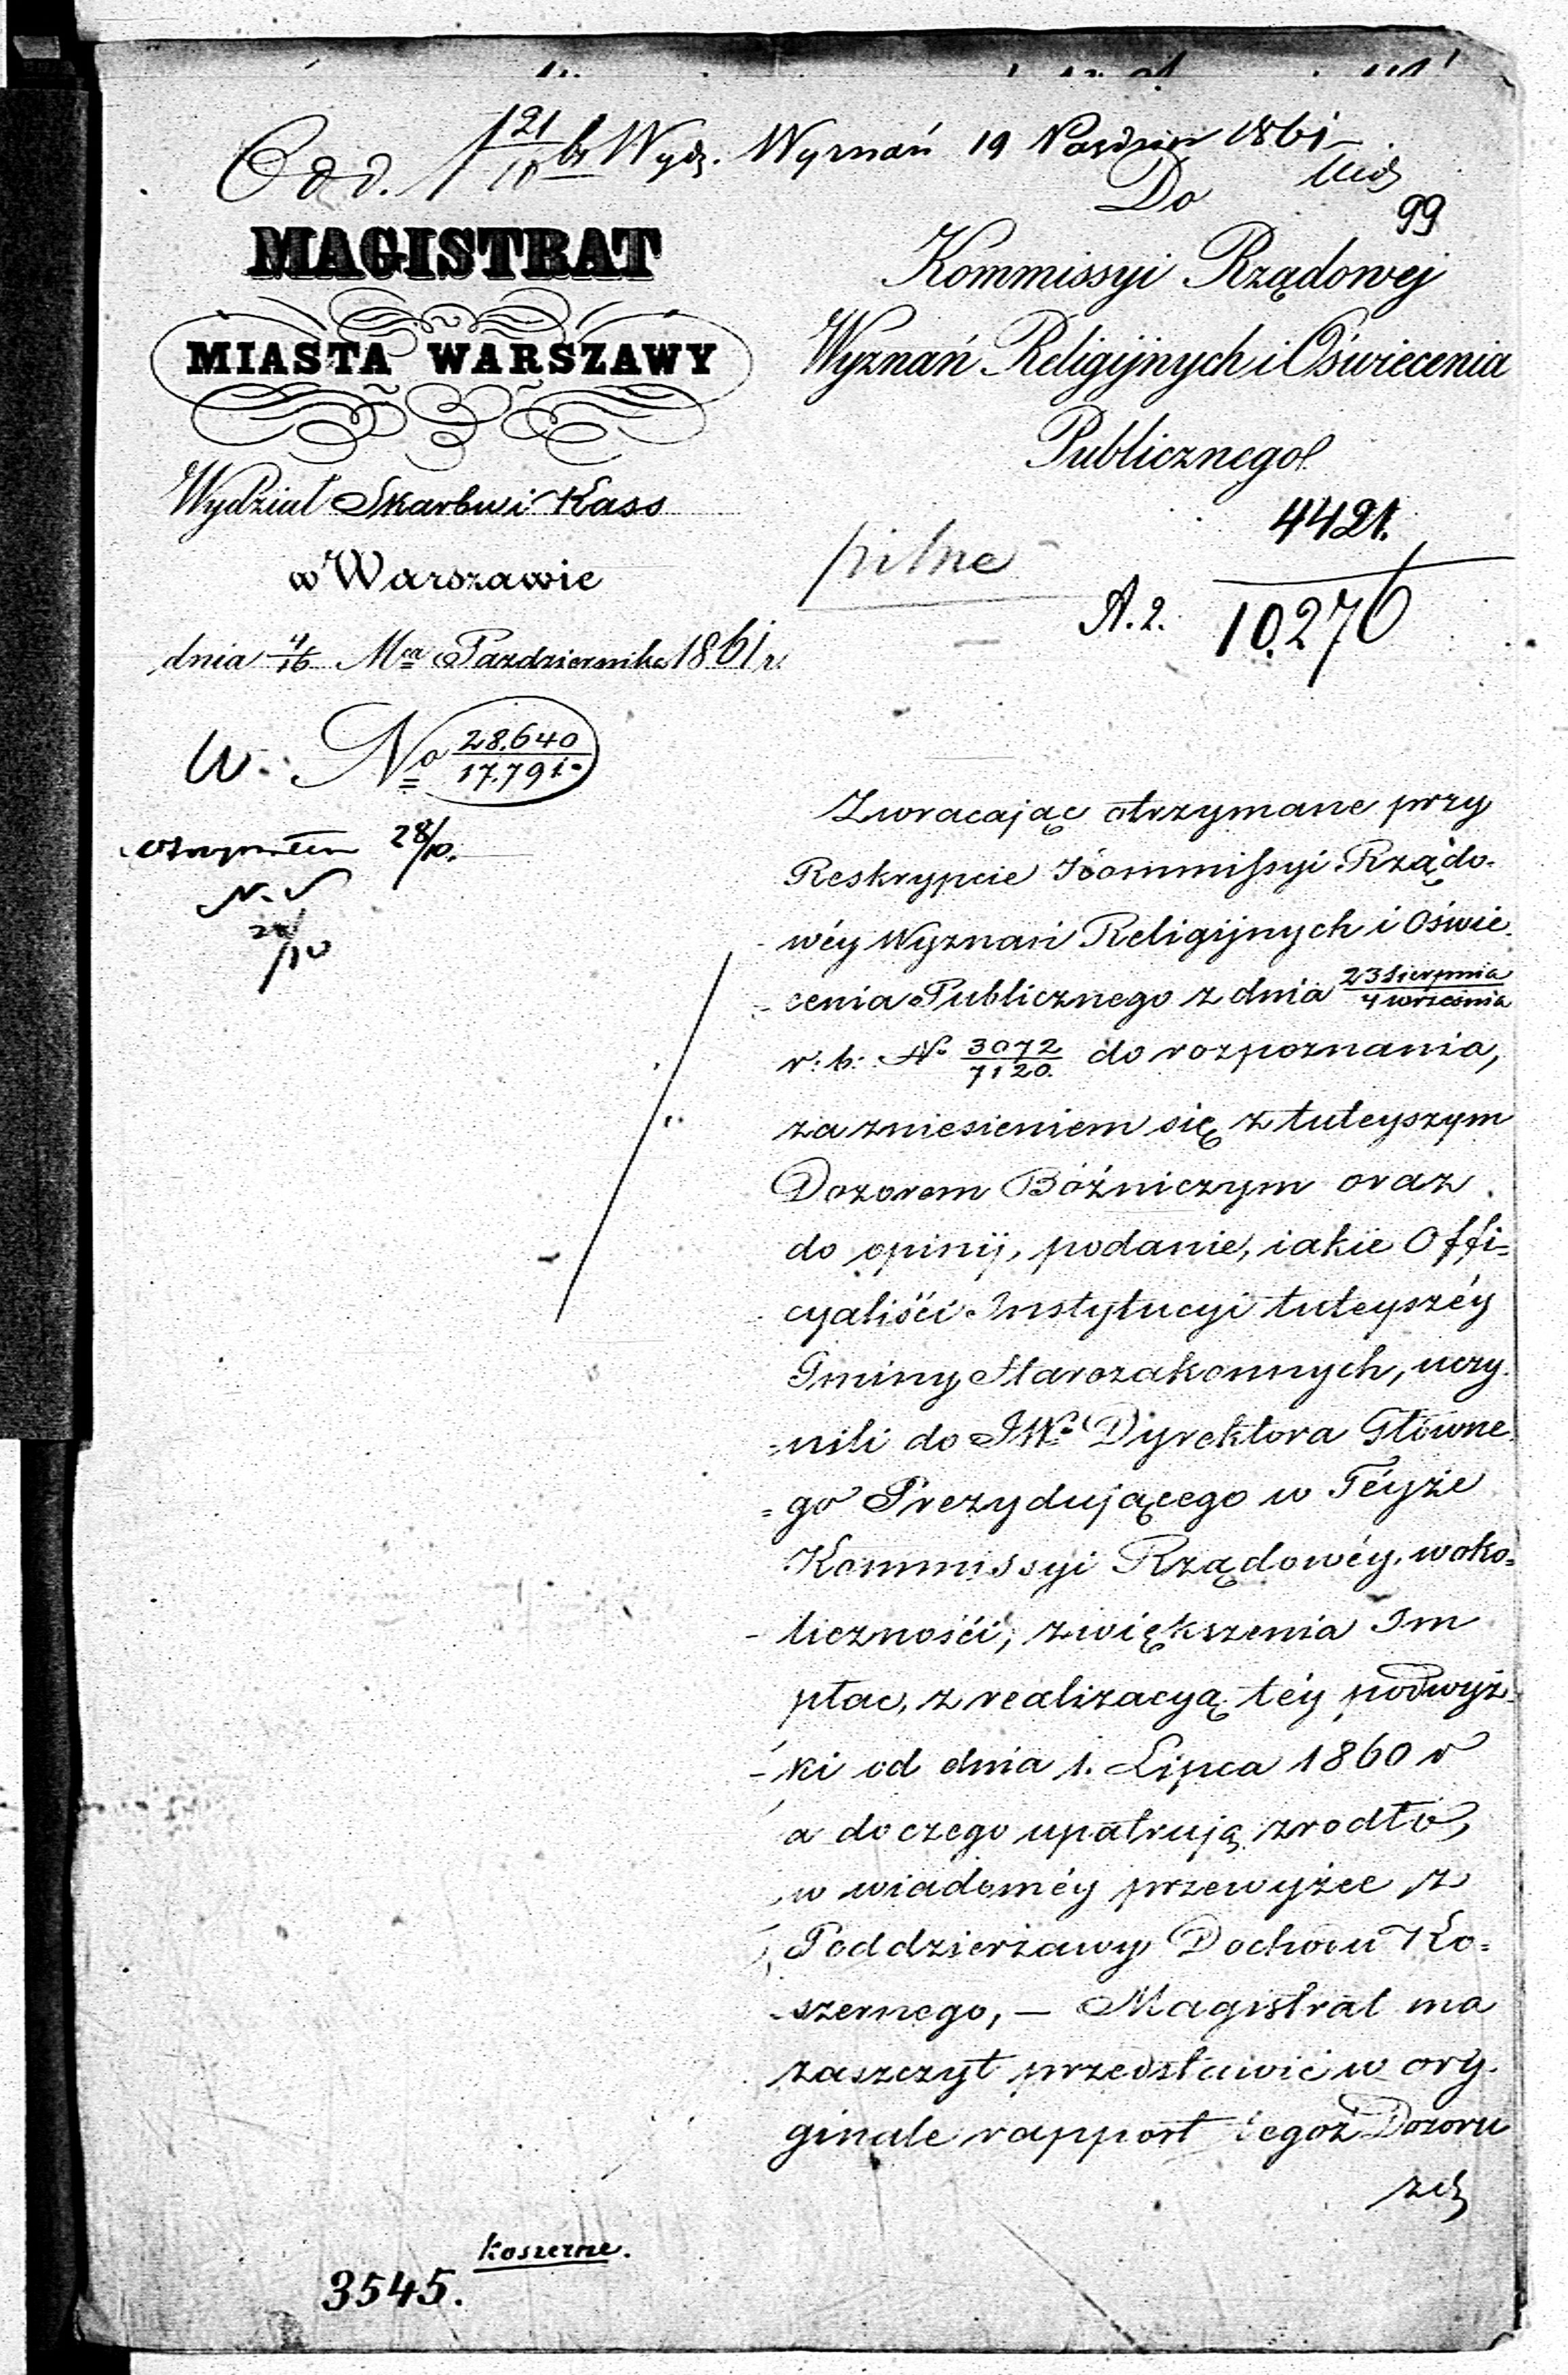 Odd. 21/10 br Wydz. Wyznań 19 Paździer 1861
Do
99
MAGISTRAT
MIASTA WARSZAWY
Wydział Skarbu i Kass
w Warszawie
dnia 4/16 Mca Października 1861 r.
W. No 28.640/17.791.
28/10.
Kommissyi Rządowej
Wyznań Religijnych i Oświecenia
Publicznego.
pilne
4421.
A. 2. 10.276
Zwracając otrzymane przy
Reskrypcie Kommissyi Rządo-
wéy Wyznań Religijnych i Oświe-
cenia Publicznego z dnia 23 Sierpnia/4 września
r: b: No 3072/7120. do rozpoznania,
za zniesieniem się z tuteyszym
Dozorem Bóźniczym oraz
do opinij, podanie, iakie Offi=
cyaliści Instytucyi tuteyszéy
Gminy Starozakonnych, uczy-
=nili do JW. Dyrektora Główne
=go Prezydującego w Téyże
Kommissyi Rządowéy, w oko=
liczności, zwiększenia Im
płac, z realizacyą téy podwyż-
-ki od dnia 1. Lipca 1860 r
a do czego upatrują zrodło,
w wiadoméy przewyżce z
Poddzierżawy Dochodu Ko=
szernego, — Magistrat ma
zaszczyt przedstawić w ory-
ginale rapport tegoż Dozoru
koszerne.
3545.